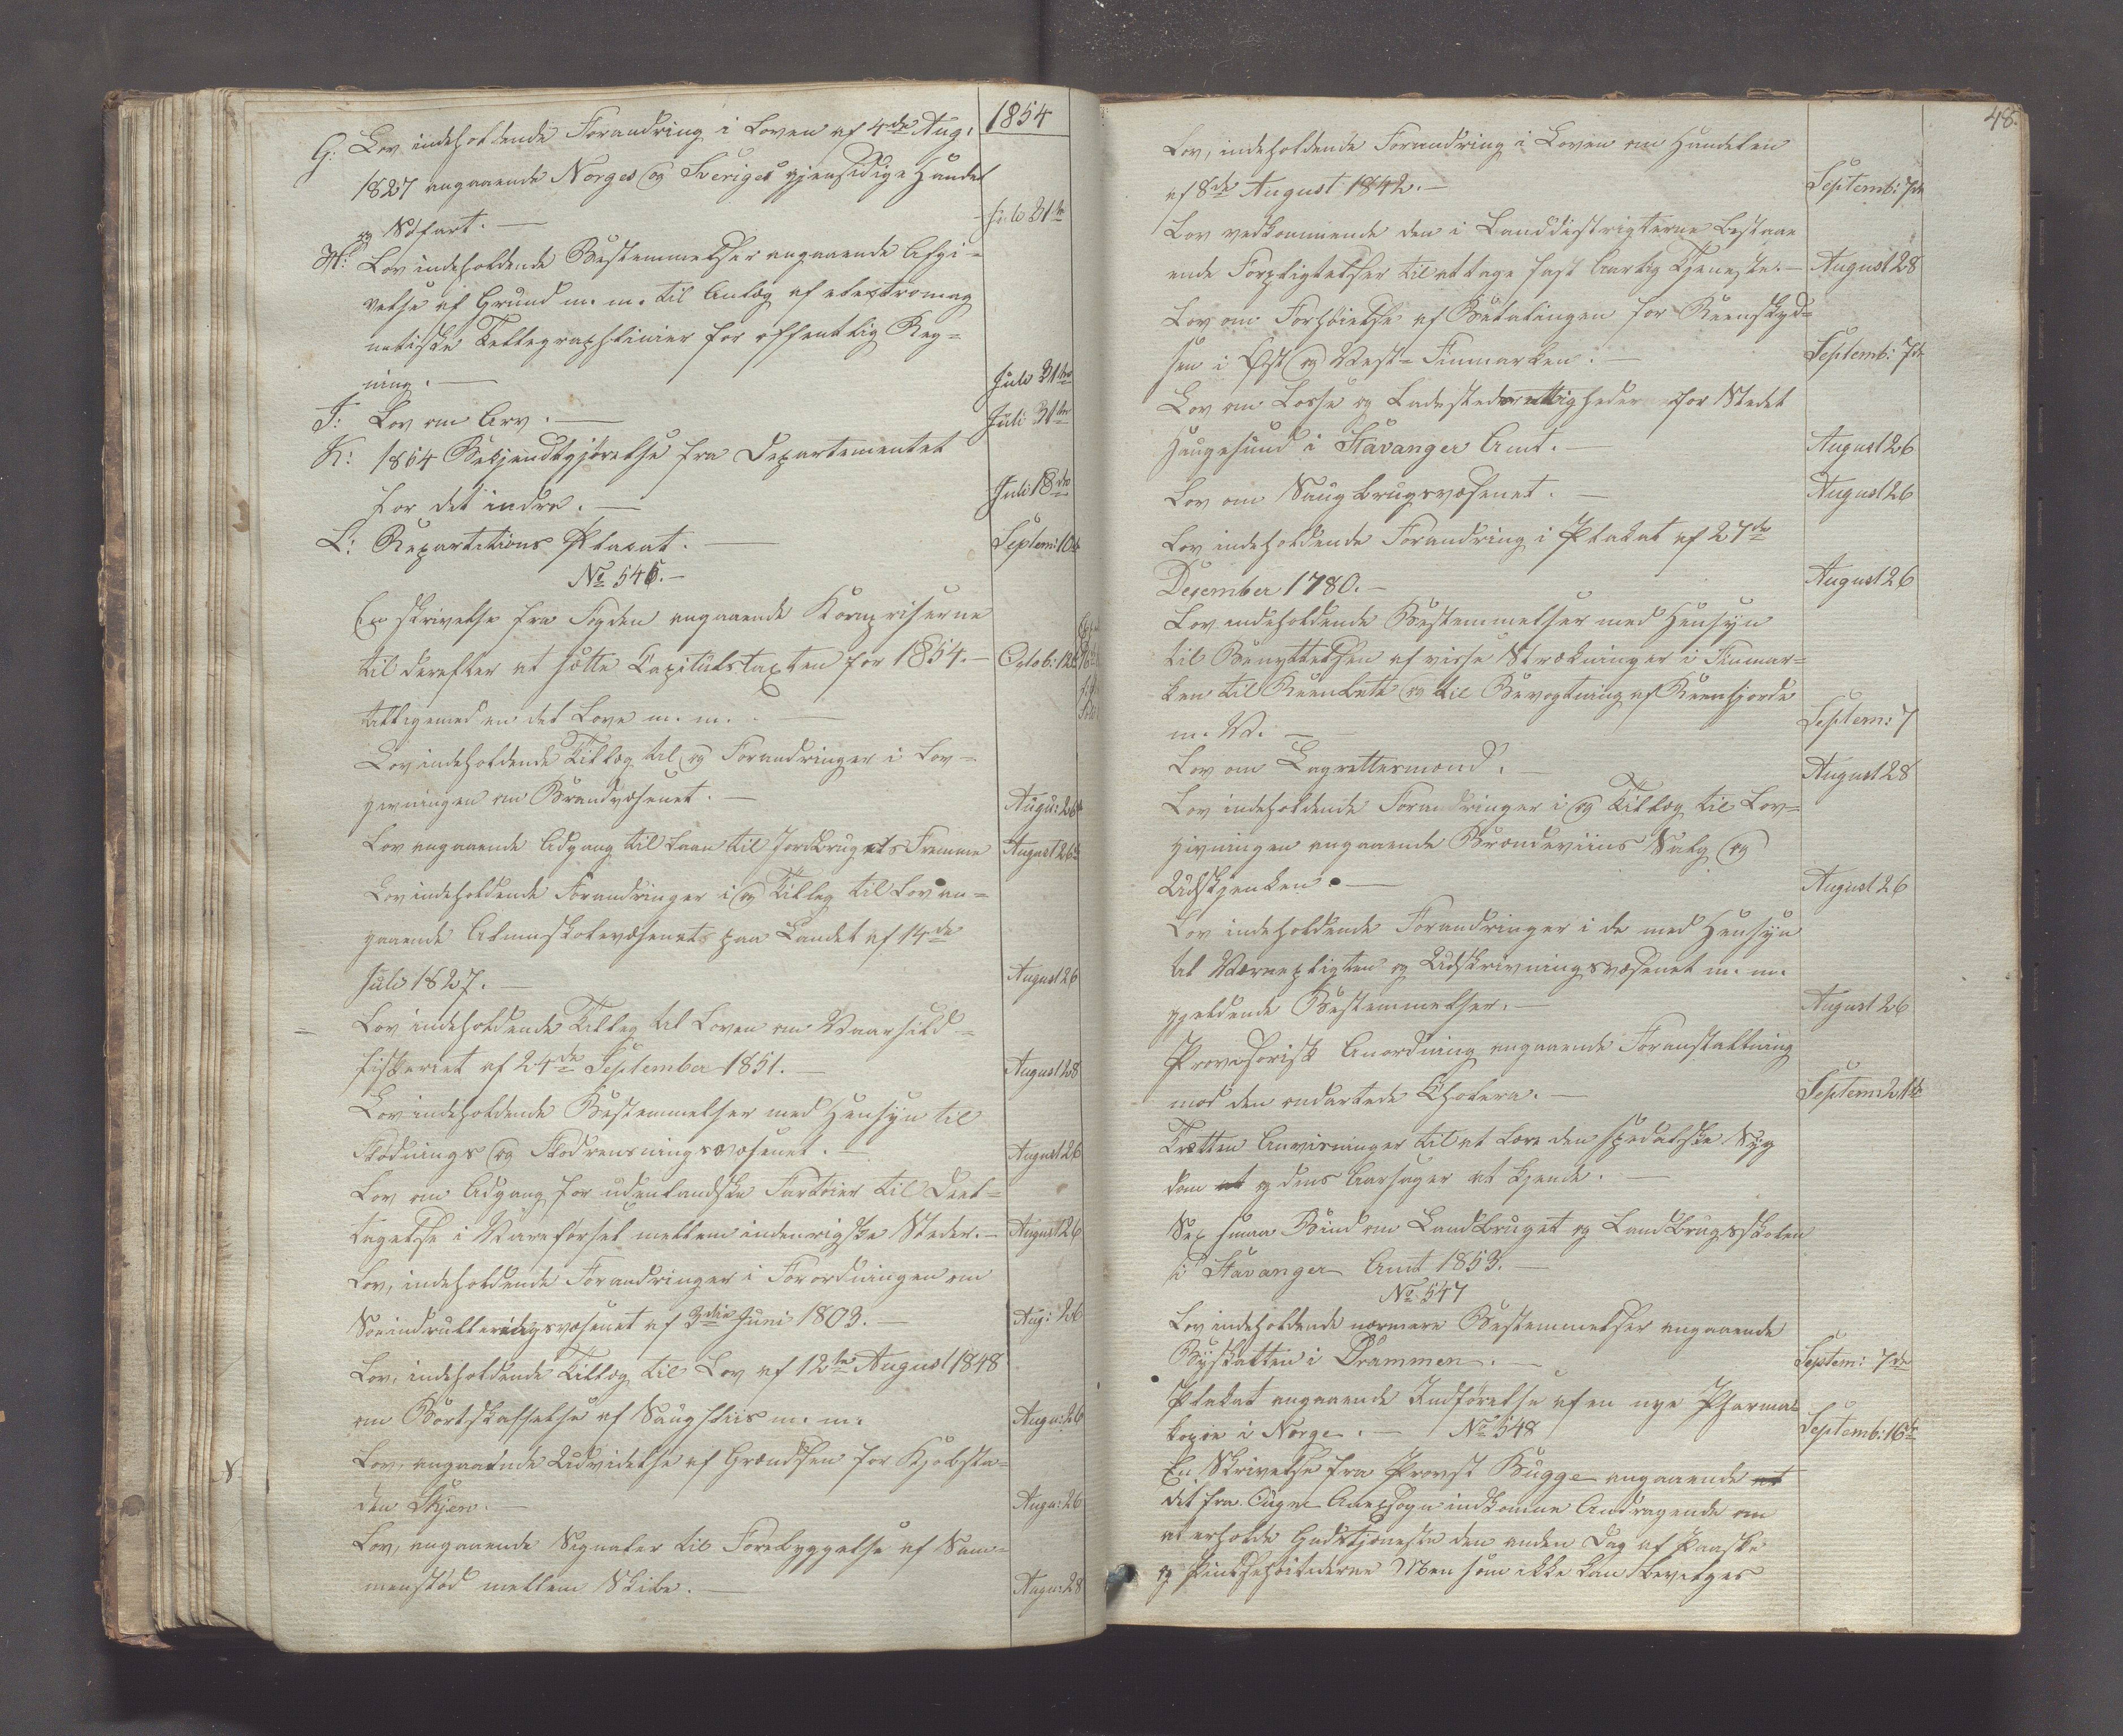 1854
G: Lov indeholdende Forandring i Loven af 4de Aug:
1827 angaaende Norges og Sveriges gjensidige Handel
og Søfart. — Juli 31te
H: Lov indeholdende Bestemmelser angaaende Afgi-
velse af Grund m. m. til Anlæg af electromag
netiske Tellegraphlinier for offentlig Reg-
ning. — Juli 31te
I: Lov om Arv. — Juli 31te
K: 1854 Bekjendtgjørelse fra Departementet
for det indre. — Juli 18de
L: Repartitions Placat. — Septem: 10de
No 546. —
En skrivelse fra Fogden angaaende Kornpriserne
til derefter at sætte Capitulstaxten for 1854. — Octob: 12te
tilligemed en del Love m. m. —
Lov indeholdende Tillæg til og Forandringer i Lov-
givningen om Brandvæsenet. — Augu: 26de
Lov angaaende Adgang til Laan til Jordbrugets Fremme August 26de
Lov indeholdende Forandringer i og Tillæg til Lov an-
gaaende Almuskolevæsenets paa Landet af 14de
Juli 1827. — August 26
Lov indeholdende Tillæg til Loven om Vaarsild-
fiskeriet af 24de September 1851. — August 28
Lov indeholdende Bestemmelser med Hensyn til
Flødnings og Flodrensningsvæsenet. — August 26
Lov om Adgang for udenlandske Fartøier til Deel-
tagelse i Vareførsel mellem indenrigske Steder. — August 26
Lov, indeholdende Forandringer i Forordningen om
Søeindrulleringsvæsenet af 3die Juni 1803. — Aug: 26
Lov, indeholdende Tillæg til Lov af 12te August 1848
om Bortskaffelse af Saugfliis m. m. Augu: 26
Lov, angaaende Udvidelse af Grændsen for Kjøbsta-
den Skjen. — Augu: 26
Lov, angaaende Signaler til Forebyggelse af Sam-
menstød mellem Skibe. — Augu: 28
48.
Lov, indeholdende Forandring i Loven om Handelen
af 8de August 1842. — Septemb: 7de
Lov vedkommende den i Landdistrigterne bestaae
ende Forpligtelser til at tage fast Aarlig Tjeneste. — August 28
Lov om Forhøielse af Betalingen for Reenskyd-
sen i Øst og Vest-Finmarken. — Septemb: 7de
Lov om Losse og Ladestedsrettigheder for Stedet
Haugesund i Stavanger Amt. — August 26
Lov om Saugbrugsvæsenet. — August 26
Lov indeholdende Forandring i Plakat af 27de
December 1780. — August 26
Lov indeholdende Bestemmelser med Hensyn
til Benyttelsen af visse Strækninger i Finmar-
ken til Reenbete og til Bevogtning af Reenhjorde
m. V. — Septem: 7
Lov om Lagrettesmænd. — August 28
Lov indeholdende Forandringer i og Tillæg til Lov-
givningen angaaende Brændeviins Salg og
Udskjænken. — August 26
Lov indeholdende Forandringer i de med Hensyn
til Værnepligten og Udskrivningsvæsenet m. m.
gjeldende Bestemmelser. — August 26
Provisorisk Anordning angaaende Foranstaltning
mod den ondartede Cholera. — Septem: 21de
Tretten Anvisninger til at lære den spedalske Syg
dom at og dens Aarsager at kjende. —
Sex smaa Bind om Landbruget og Landbrugsskolen
i Stavanger Amt 1853. —
No 547
Lov indeholdende nærmere Bestemmelser angaaende
Byskatten i Drammen. — Septem: 7de
Plakat angaaende Indførelse af en nye Pharma-
kopie i Norge. — No 548 Septemb: 16de
En Skrivelse fra Provst Bugge angaaende at
det fra Anexsogn indkomne Andragende om
at erholde Gudstjeneste den anden Dag af Paaske
og Pintsehøitiderne Men som ikke kan bevilges